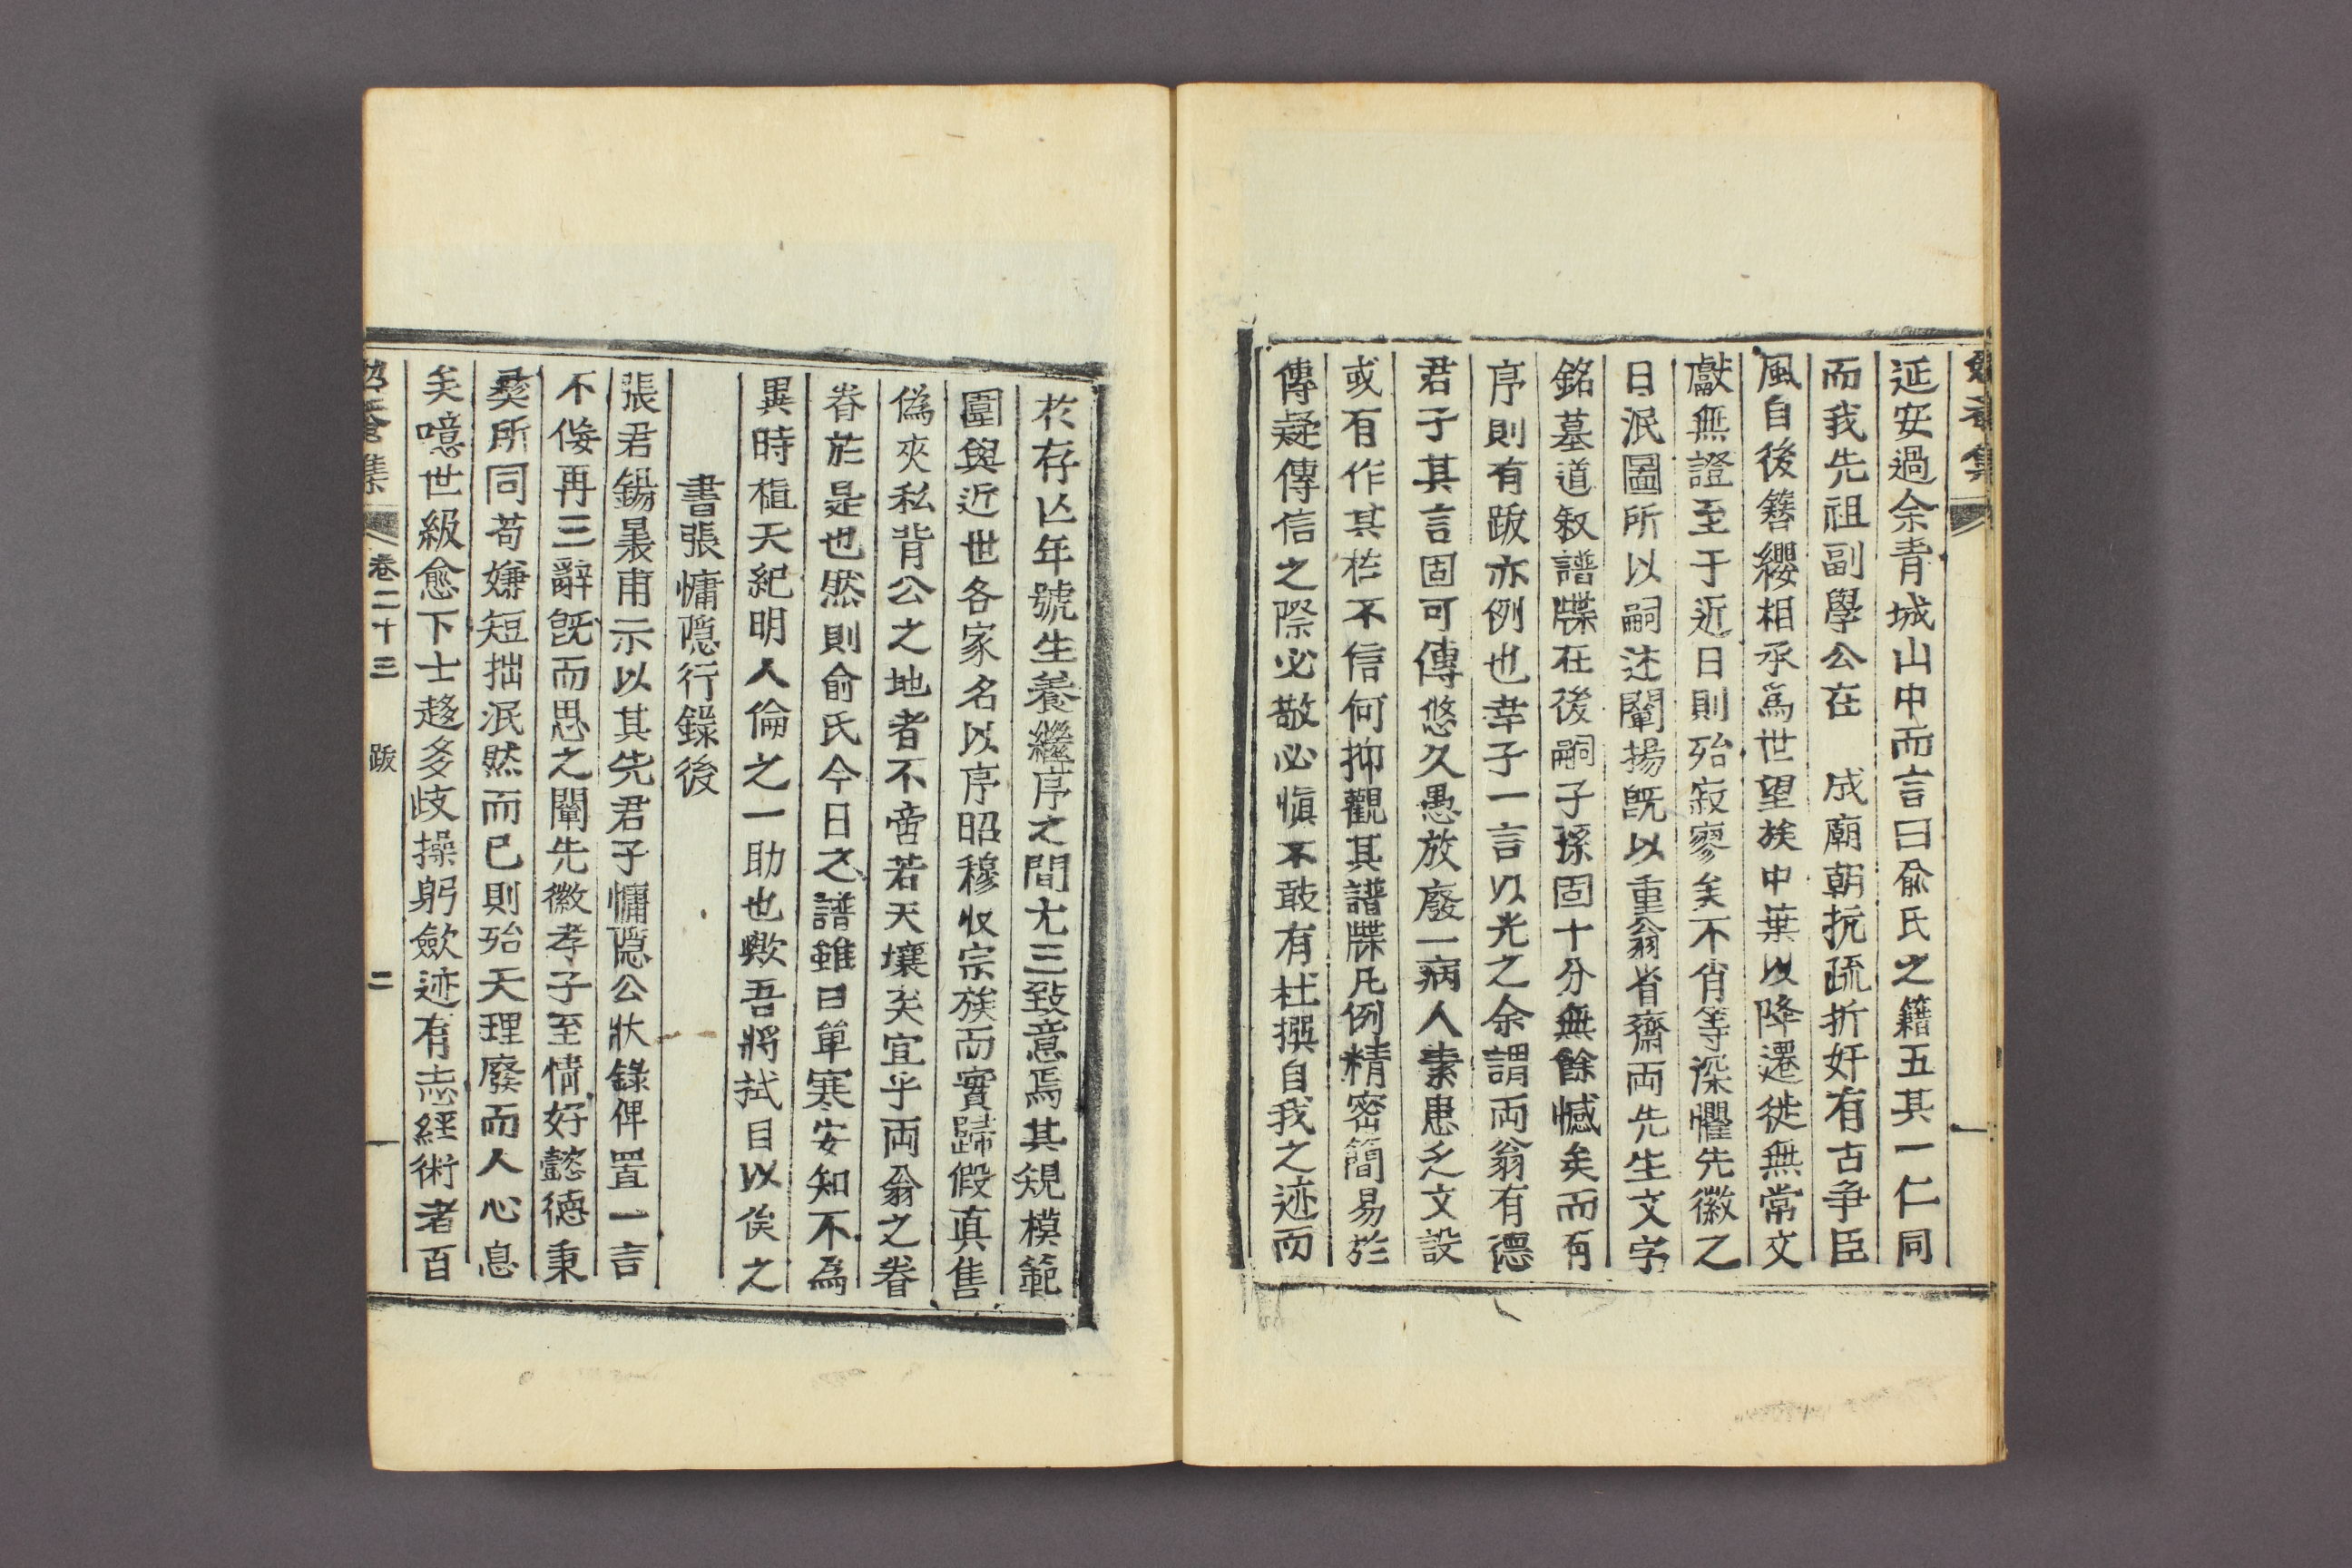 延安過余青城山中而言曰兪氏之籍五其一仁同
而我先祖副學公在 成廟朝抗疏折奸有古爭臣
風自後簪纓相承爲世望族中葉以降遷徙無常文
獻無證至于近日則殆寂寥矣不肖等深懼先徽之
日泯圖所以嗣述闡揚旣以重翁省齋両先生文字
銘墓道叙譜牒在後嗣子孫固十分無餘憾矣而有
序則有跋亦例也幸子一言以光之余謂両翁有德
君子其言固可傳悠久愚放廢一病人素患乏文設
或有作其於不信何抑觀其譜牒凡例精密簡易於
傳疑傳信之際必敬必愼不敢有杜撰自我之迹而
於存亾年號生養繼序之間尤三致意焉其規模範
圍與近世各家名以序昭穆収宗族而實歸假真售
僞夾私背公之地者不啻若天壤矣宜乎両翁之眷
眷於是也然則俞氏今日之譜雖曰單寒安知不爲
異時植天紀明人倫之一助也歟吾將拭目以俟之
書張慵隱行錄後
張君錫㬥甫示以其先君子慵隱公狀錄俾置一言
不侫再三辭旣而思之闡先徽孝子至情好懿德秉
彜所同苟嫌短拙泯然而已則殆天理廢而人心息
矣噫世級愈下士趍多歧操躬歛迹有志經術者百
卷二十三 跋 二